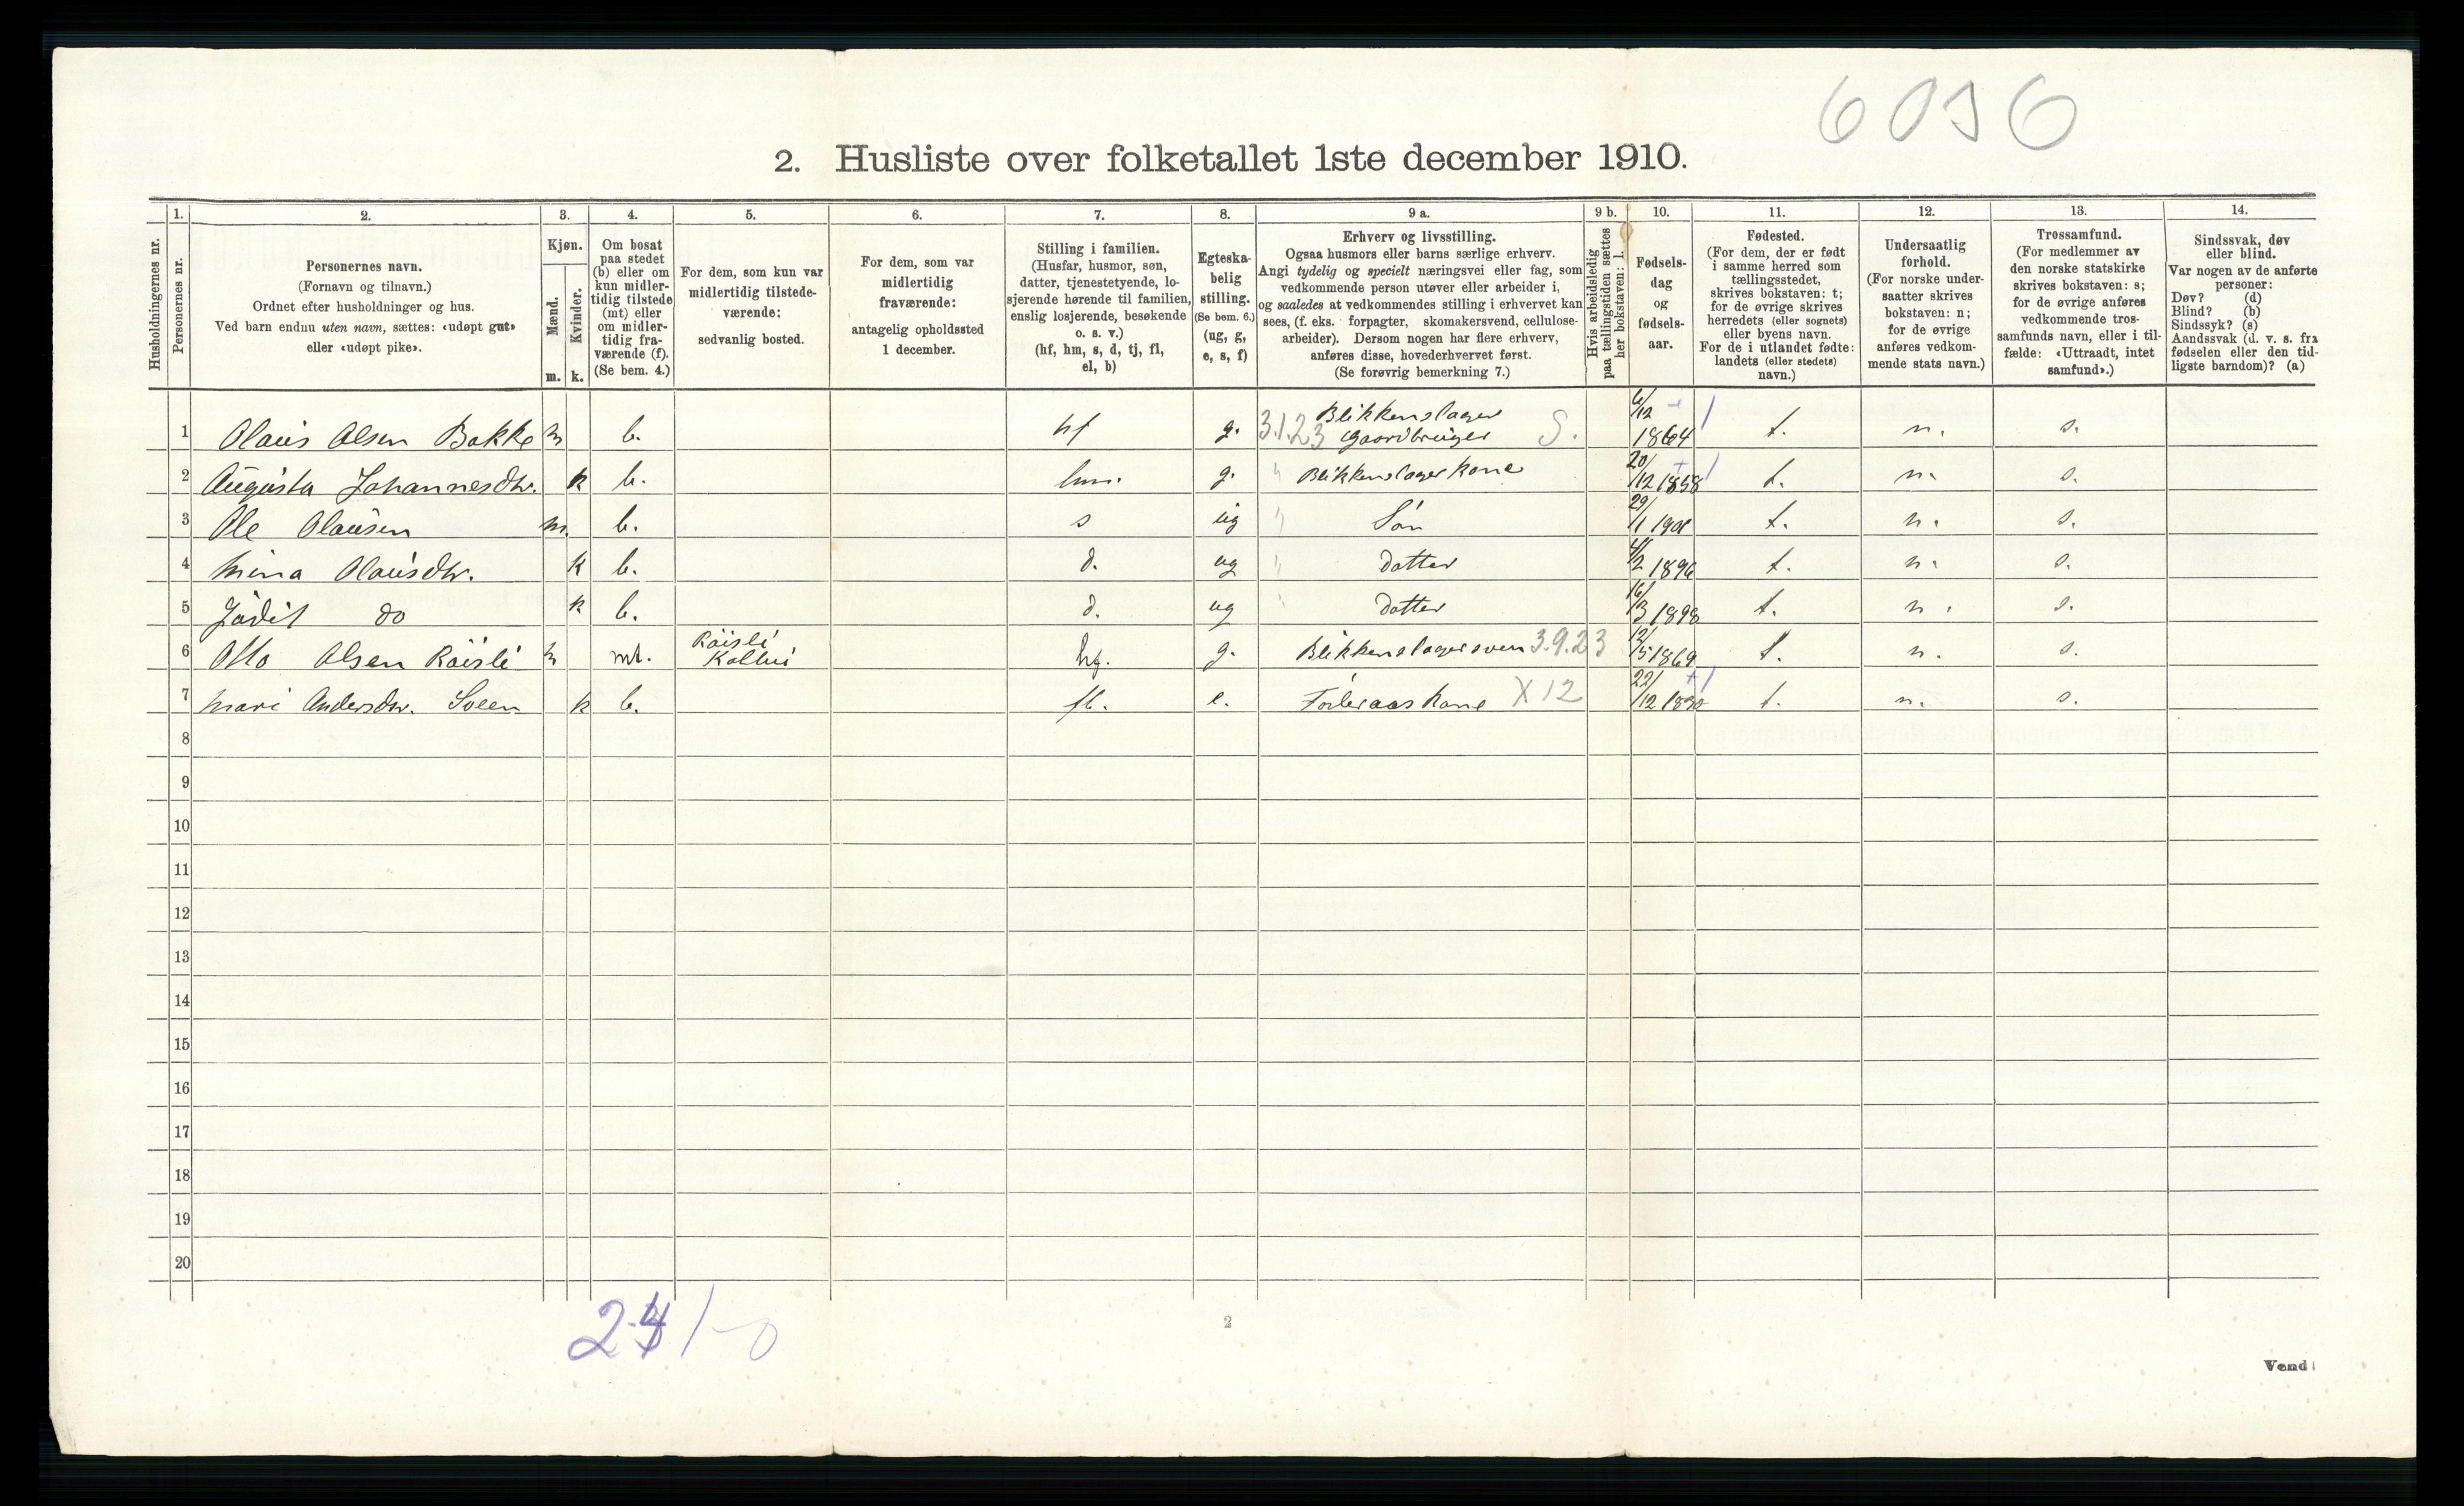 6036
2. Husliste over folketallet 1ste december 1910.
Husholdningernes nr.
1. Personernes nr.
2. Personernes navn. (Fornavn og tilnavn.) Ordnet efter husholdninger og hus. Ved barn endnu uten navn, sættes: «udøpt gut» eller «udøpt pike».
3. Kjøn. Mænd. m. Kvinder. k.
4. Om bosat paa stedet (b) eller om kun midlertidig tilstede (mt) eller om midlertidig fraværende (f). (Se bem. 4.)
5. For dem, som kun var midlertidig tilstedeværende: sedvanlig bosted.
6. For dem, som var midlertidig fraværende: antagelig opholdssted 1 december.
7. Stilling i familien. (Husfar, husmor, søn, datter, tjenestetyende, losjerende hørende til familien, enslig losjerende, besøkende o. s. v.) (hf, hm, s, d, tj, fl, el, b)
8. Egteskabelig stilling. (Se bem. 6.) (ug, g, e, s, f)
9 a. Erhverv og livsstilling. Ogsaa husmors eller barns særlige erhverv. Angi tydelig og specielt næringsvei eller fag, som vedkommende person utøver eller arbeider i, og saaledes at vedkommendes stilling i erhvervet kan sees, (f. eks. forpagter, skomakersvend, cellulosearbeider). Dersom nogen har flere erhverv, anføres disse, hovederhvervet først. (Se forøvrig bemerkning 7.)
9 b. Hvis arbeidsledig paa tællingstiden sættes her bokstaven: l.
10. Fødselsdag og fødselsaar.
11. Fødested. (For dem, der er født i samme herred som tællingsstedet, skrives bokstaven: t; for de øvrige skrives herredets (eller sognets) eller byens navn. For de i utlandet fødte: landets (eller stedets) navn.)
12. Undersaatlig forhold. (For norske undersaatter skrives bokstaven: n; for de øvrige anføres vedkommende stats navn.)
13. Trossamfund. (For medlemmer av den norske statskirke skrives bokstaven: s; for de øvrige anføres vedkommende trossamfunds navn, eller i tilfælde: «Uttraadt, intet samfund».)
14. Sindssvak, døv eller blind. Var nogen av de anførte personer: Døv? (d) Blind? (b) Sindssyk? (s) Aandssvak (d. v. s. fra fødselen eller den tidligste barndom)? (a)
1 Olaus Olsen Bakke m b. hf g. 3.1.23 Blikkenslager Gaardbruger S. 6/12 1864 t. n. s.
2 Augusta Johannesdtr. k b. hm. g. " Blikkenslagerkone 20/12 1858 t. n. s.
3 Ole Olausen m. b. s ug " Søn 29/11 1901 t. n. s.
4 Mina Olausdtr. k b. d. ug " Datter 4/2 1896 t. n. s.
5 Judit do k b. d. ug " Datter 16/3 1898 t. n. s.
6 Otto Olsen Røisli m mt. Røisli Kolbu hf. g. Blikkenslagersven 3.9.23 12/5 1869 t. n. s.
7 Mari Andersdtr. Sveen k b. fl. e. Føderaaskone X 12 22/12 1830 t. n. s.
8
9
10
11
12
13
14
15
16
17
18
19
20
2
Vend